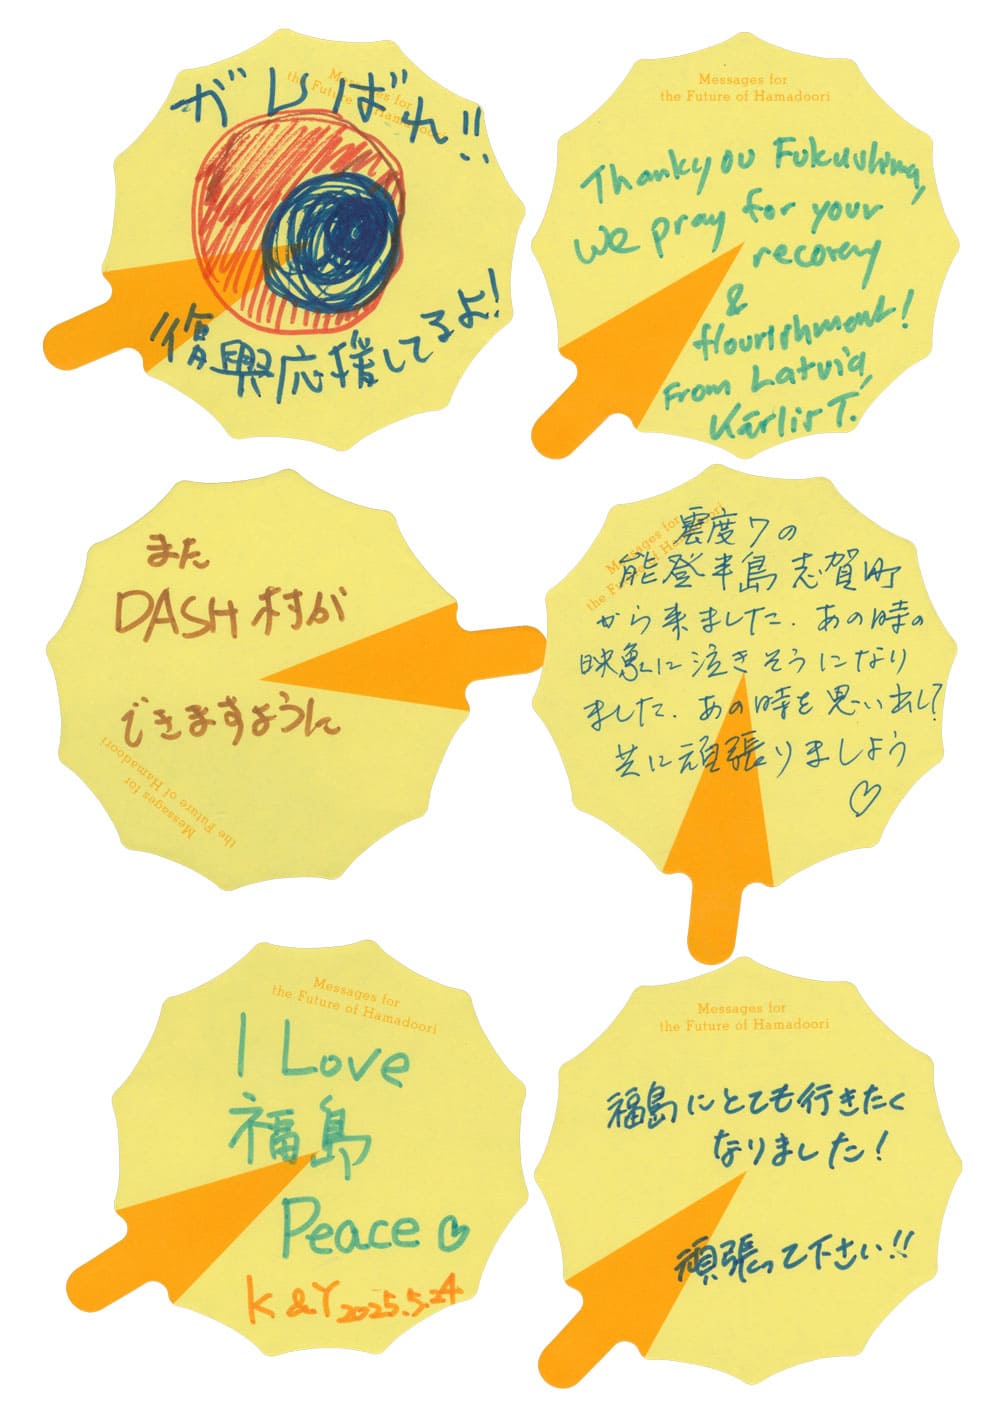 Messages for
the Future of Hamadoori
ガンばれ!!
復興応援してるよ!
Messages for
the Future of Hamadoori
Thankyou Fukushima,
We pray for your
recovery
&
flourishment!
From Latvia,
Kārlis T.
また
DASH村が
できますように
Messages for
the Future of Hamadoori
Messages for
the Future of Hamadoori
震度7の
能登半島志賀町
から来ました.あの時の
映像に泣きそうになり
ました.あの時を思い出し?
共に頑張りましょう
♡
Messages for
the Future of Hamadoori
I Love
福島
Peace ♡
K&Y 2025.5.24
Messages for
the Future of Hamadoori
福島にとても行きたく
なりました!
頑張って下さい!!